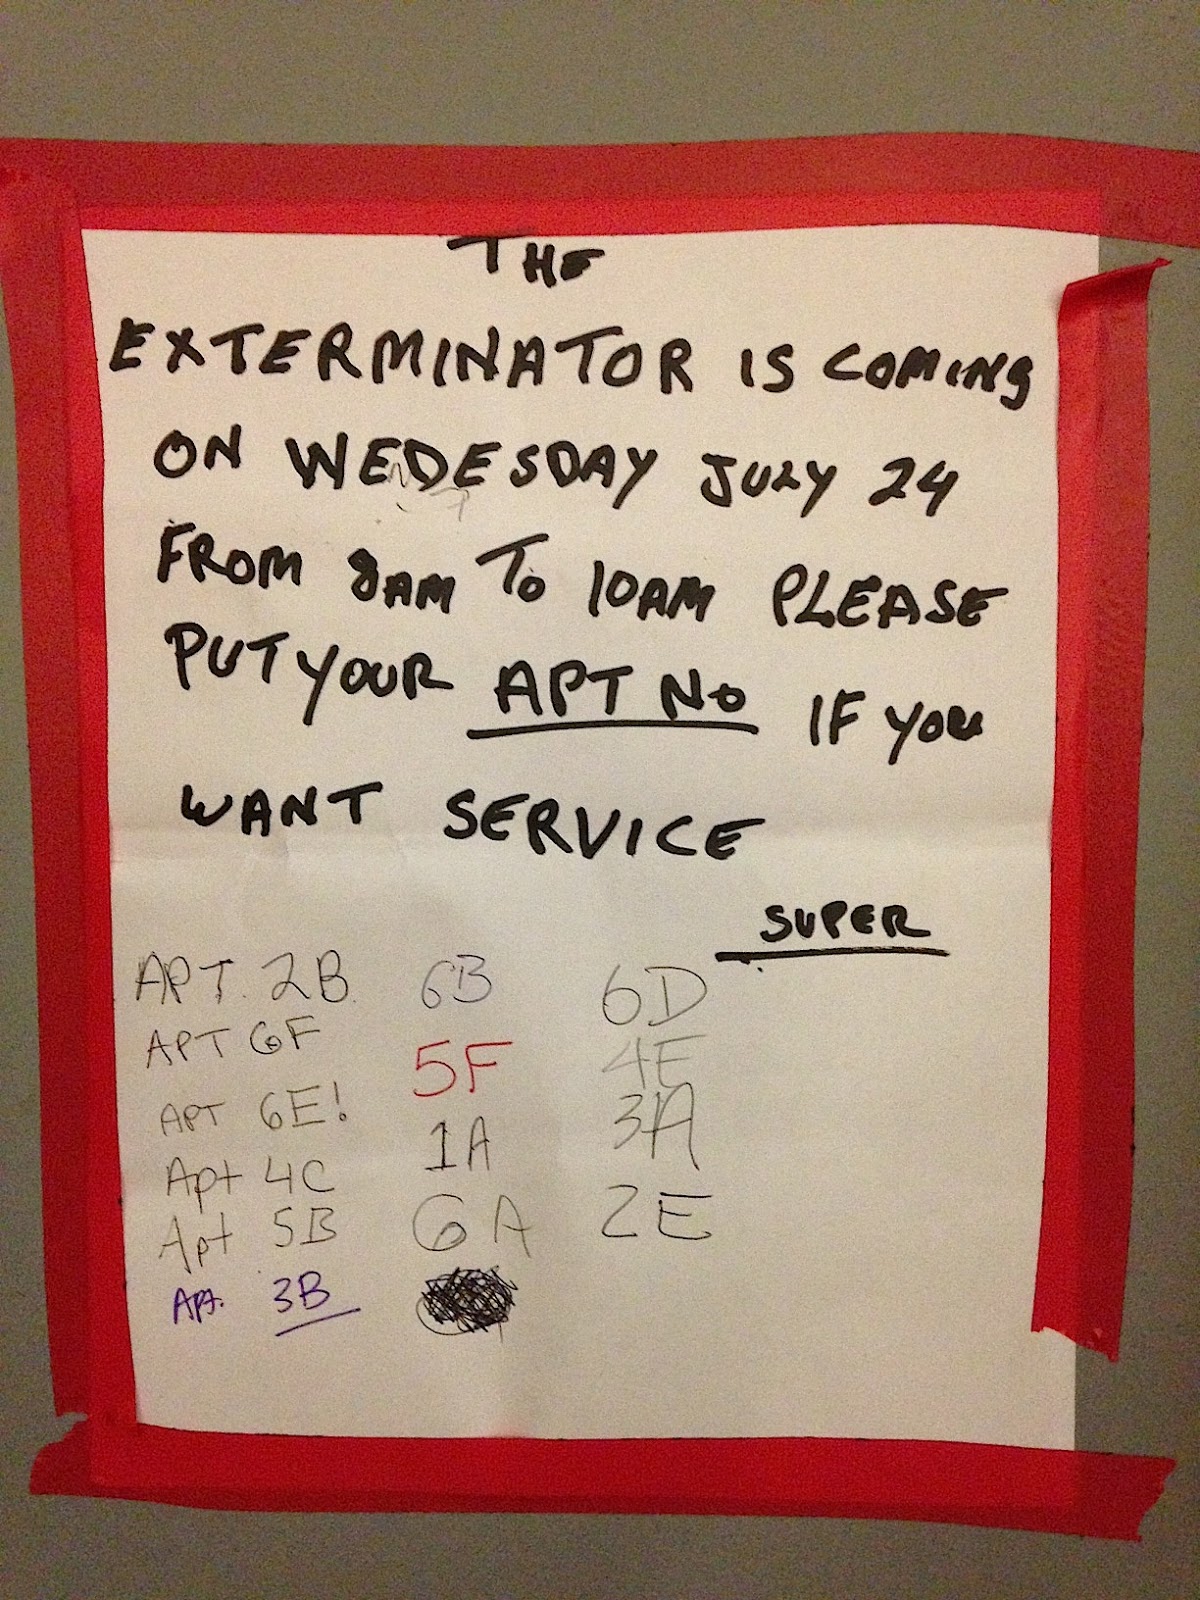 THE
EXTERMINATOR IS COMING
ON WEDESDAY JULY 24
FROM 8AM TO 10AM PLEASE
PUT YOUR APT NO IF YOU
WANT SERVICE
SUPER
APT. 2B 6B 6D
APT 6F 5F 4E
APT 6E! 1A 3A
Apt 4C 6A 2E
Apt 5B
APt. 3B